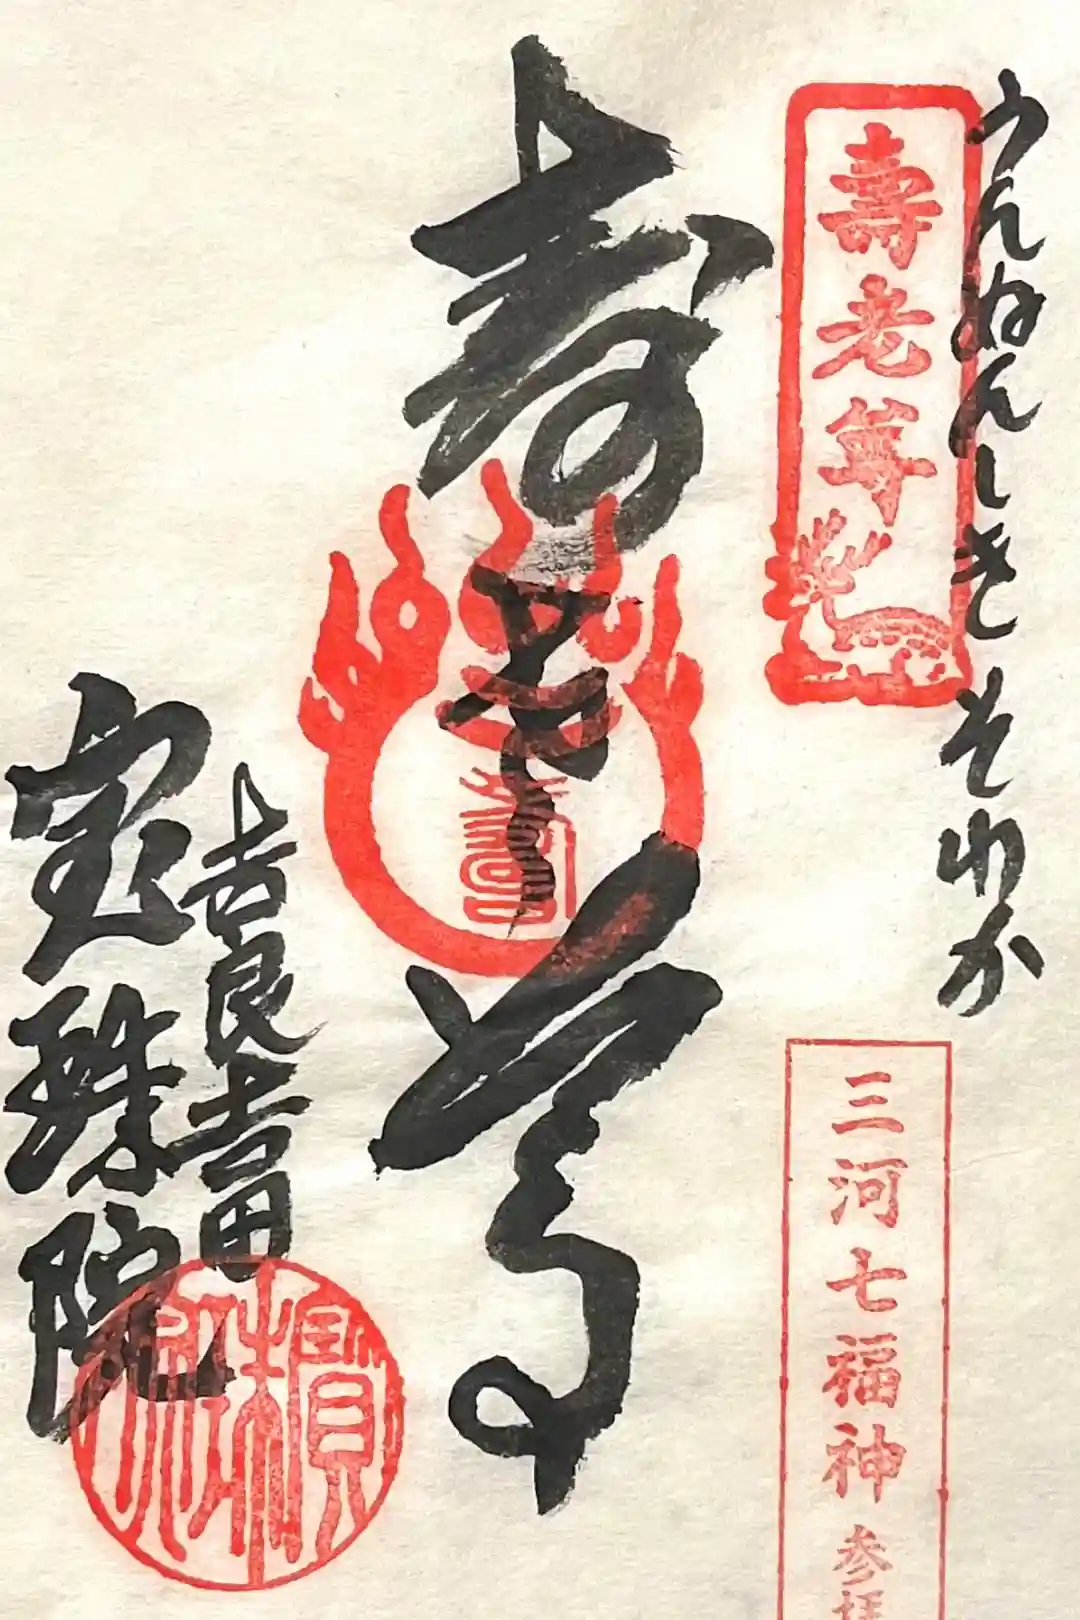 うんぬんしきそわか
壽老尊
三河七福神 参拝
寿老尊
吉良吉田
宝珠院